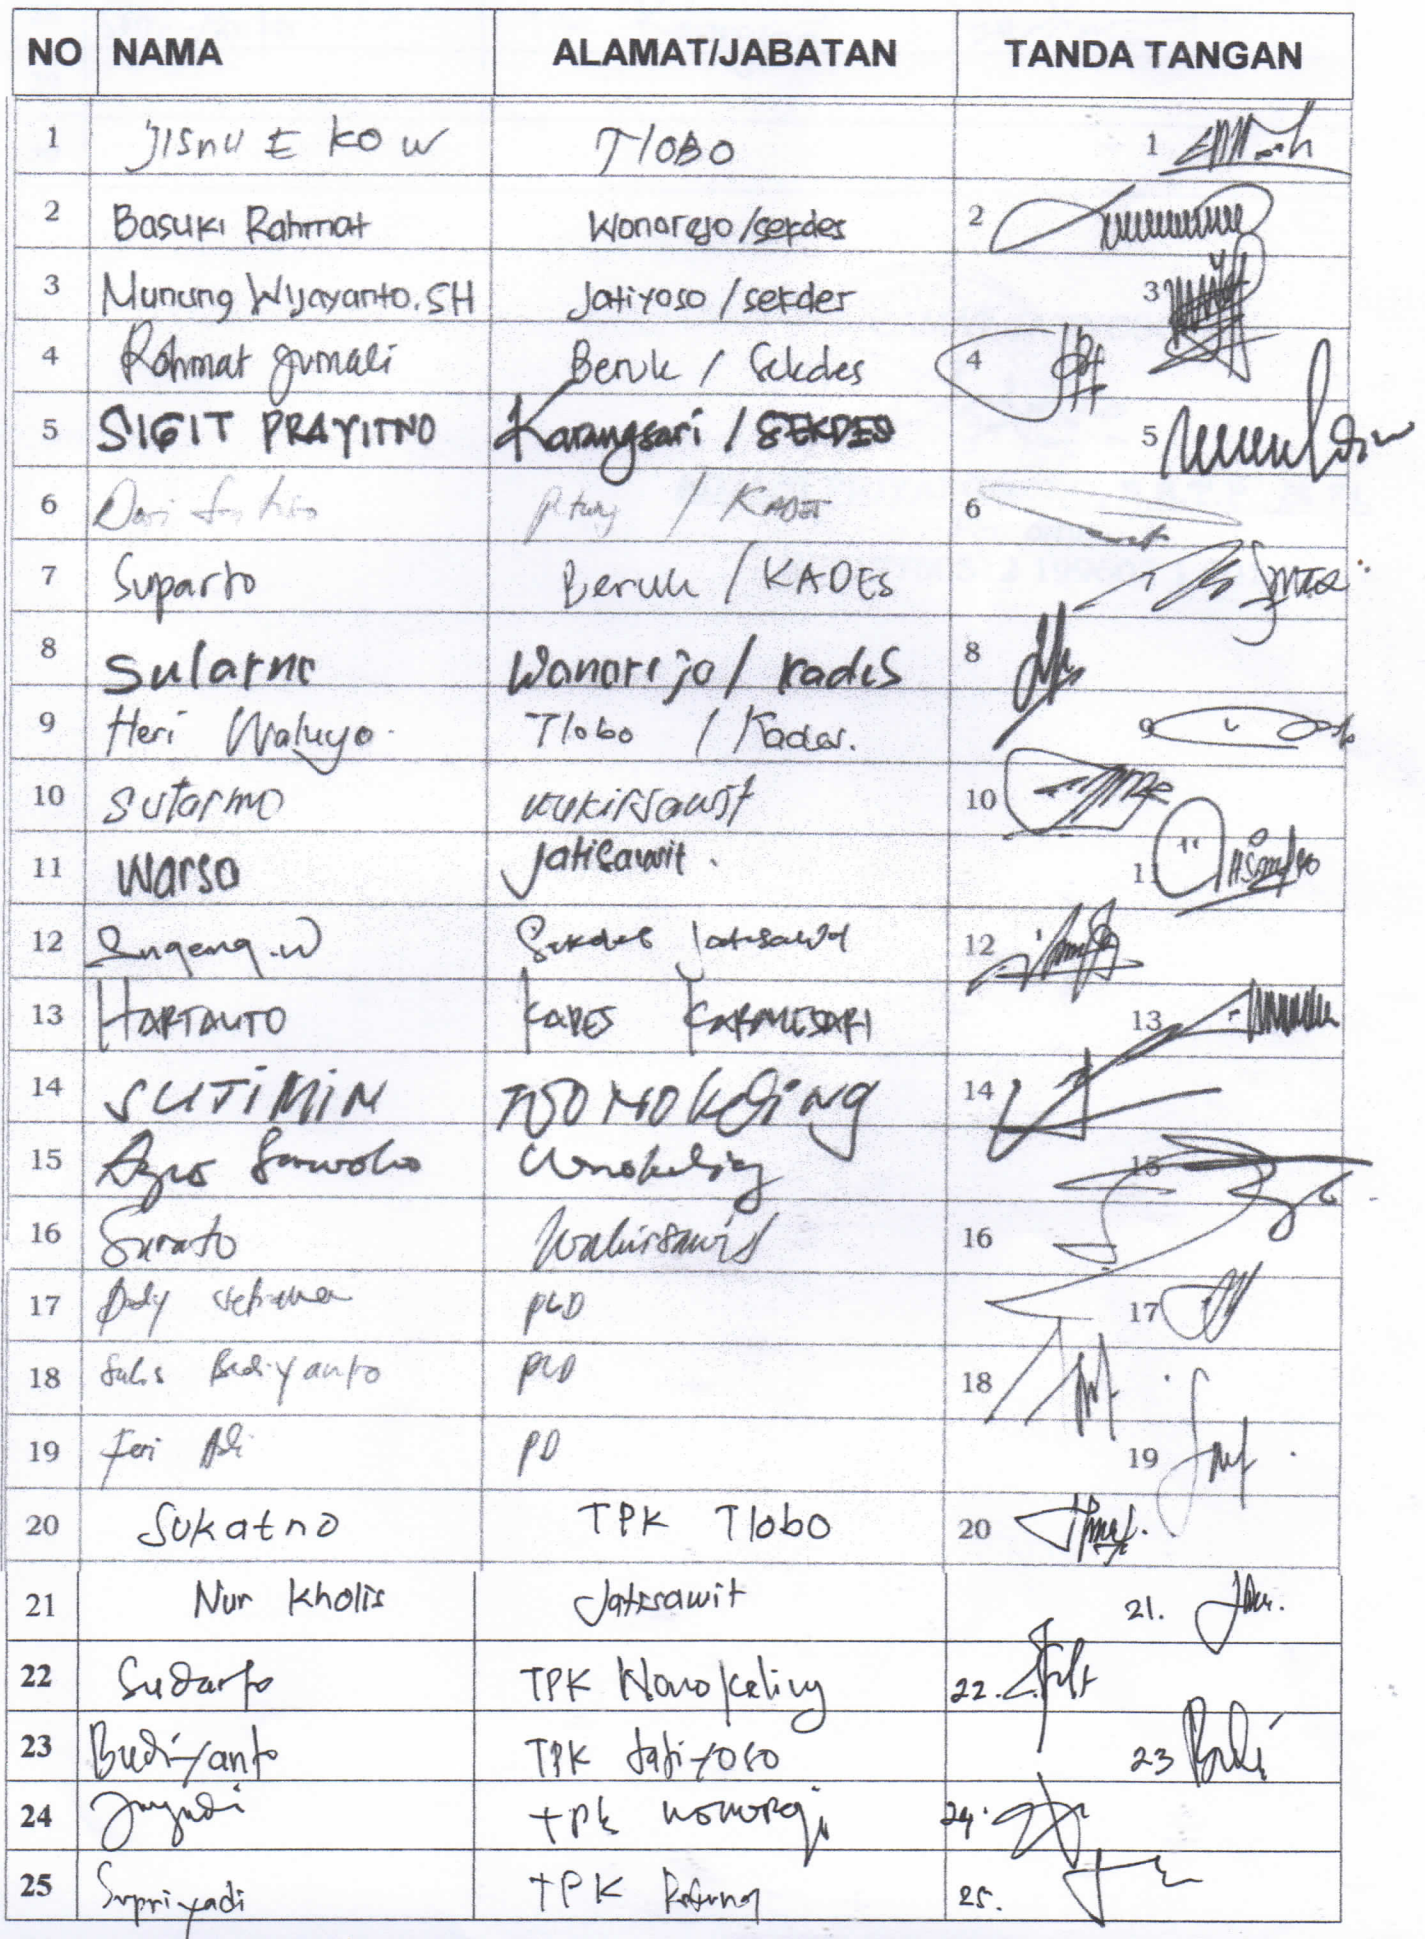 NO NAMA ALAMAT/JABATAN TANDA TANGAN
1 JISNU EKO W Tlobo 1
2 Basuki Rahmat Wonorejo/sekdes 2
3 Munung Wijayanto.SH Jatiyoso/sekdes 3
4 Rahmat Jumali Beruk / Sekdes 4
5 SIGIT PRAYITNO Karangsari / SEKDES 5
6 / KADES 6
7 Suparto Beruk / KADES 7
8 Sularno Wonorejo / Kades 8
9 Heri Waluyo Tlobo / Kades. 9
10 Sutarmo Wukirsawit 10
11 Warso Jatisawit. 11
12 Sugeng.W Sekdes Jatisawit 12
13 HARTANTO KADES KARANGSARI 13
14 SUTIMIN WONOKeliNg 14
15 Wonokeling 15
16 Surato Wukirsawit 16
17 PLD 17
18 Sulis Budiyanto PLD 18
19 Feri PD 19
20 Sukatno TPK Tlobo 20
21 Nur Kholis Jatisawit 21.
22 Sudarto TPK Wonokeling 22.
23 Budiyanto TPK Jatiyoso 23 Budi
24 TPK Wonorejo 24.
25 Supriyadi TPK 25.